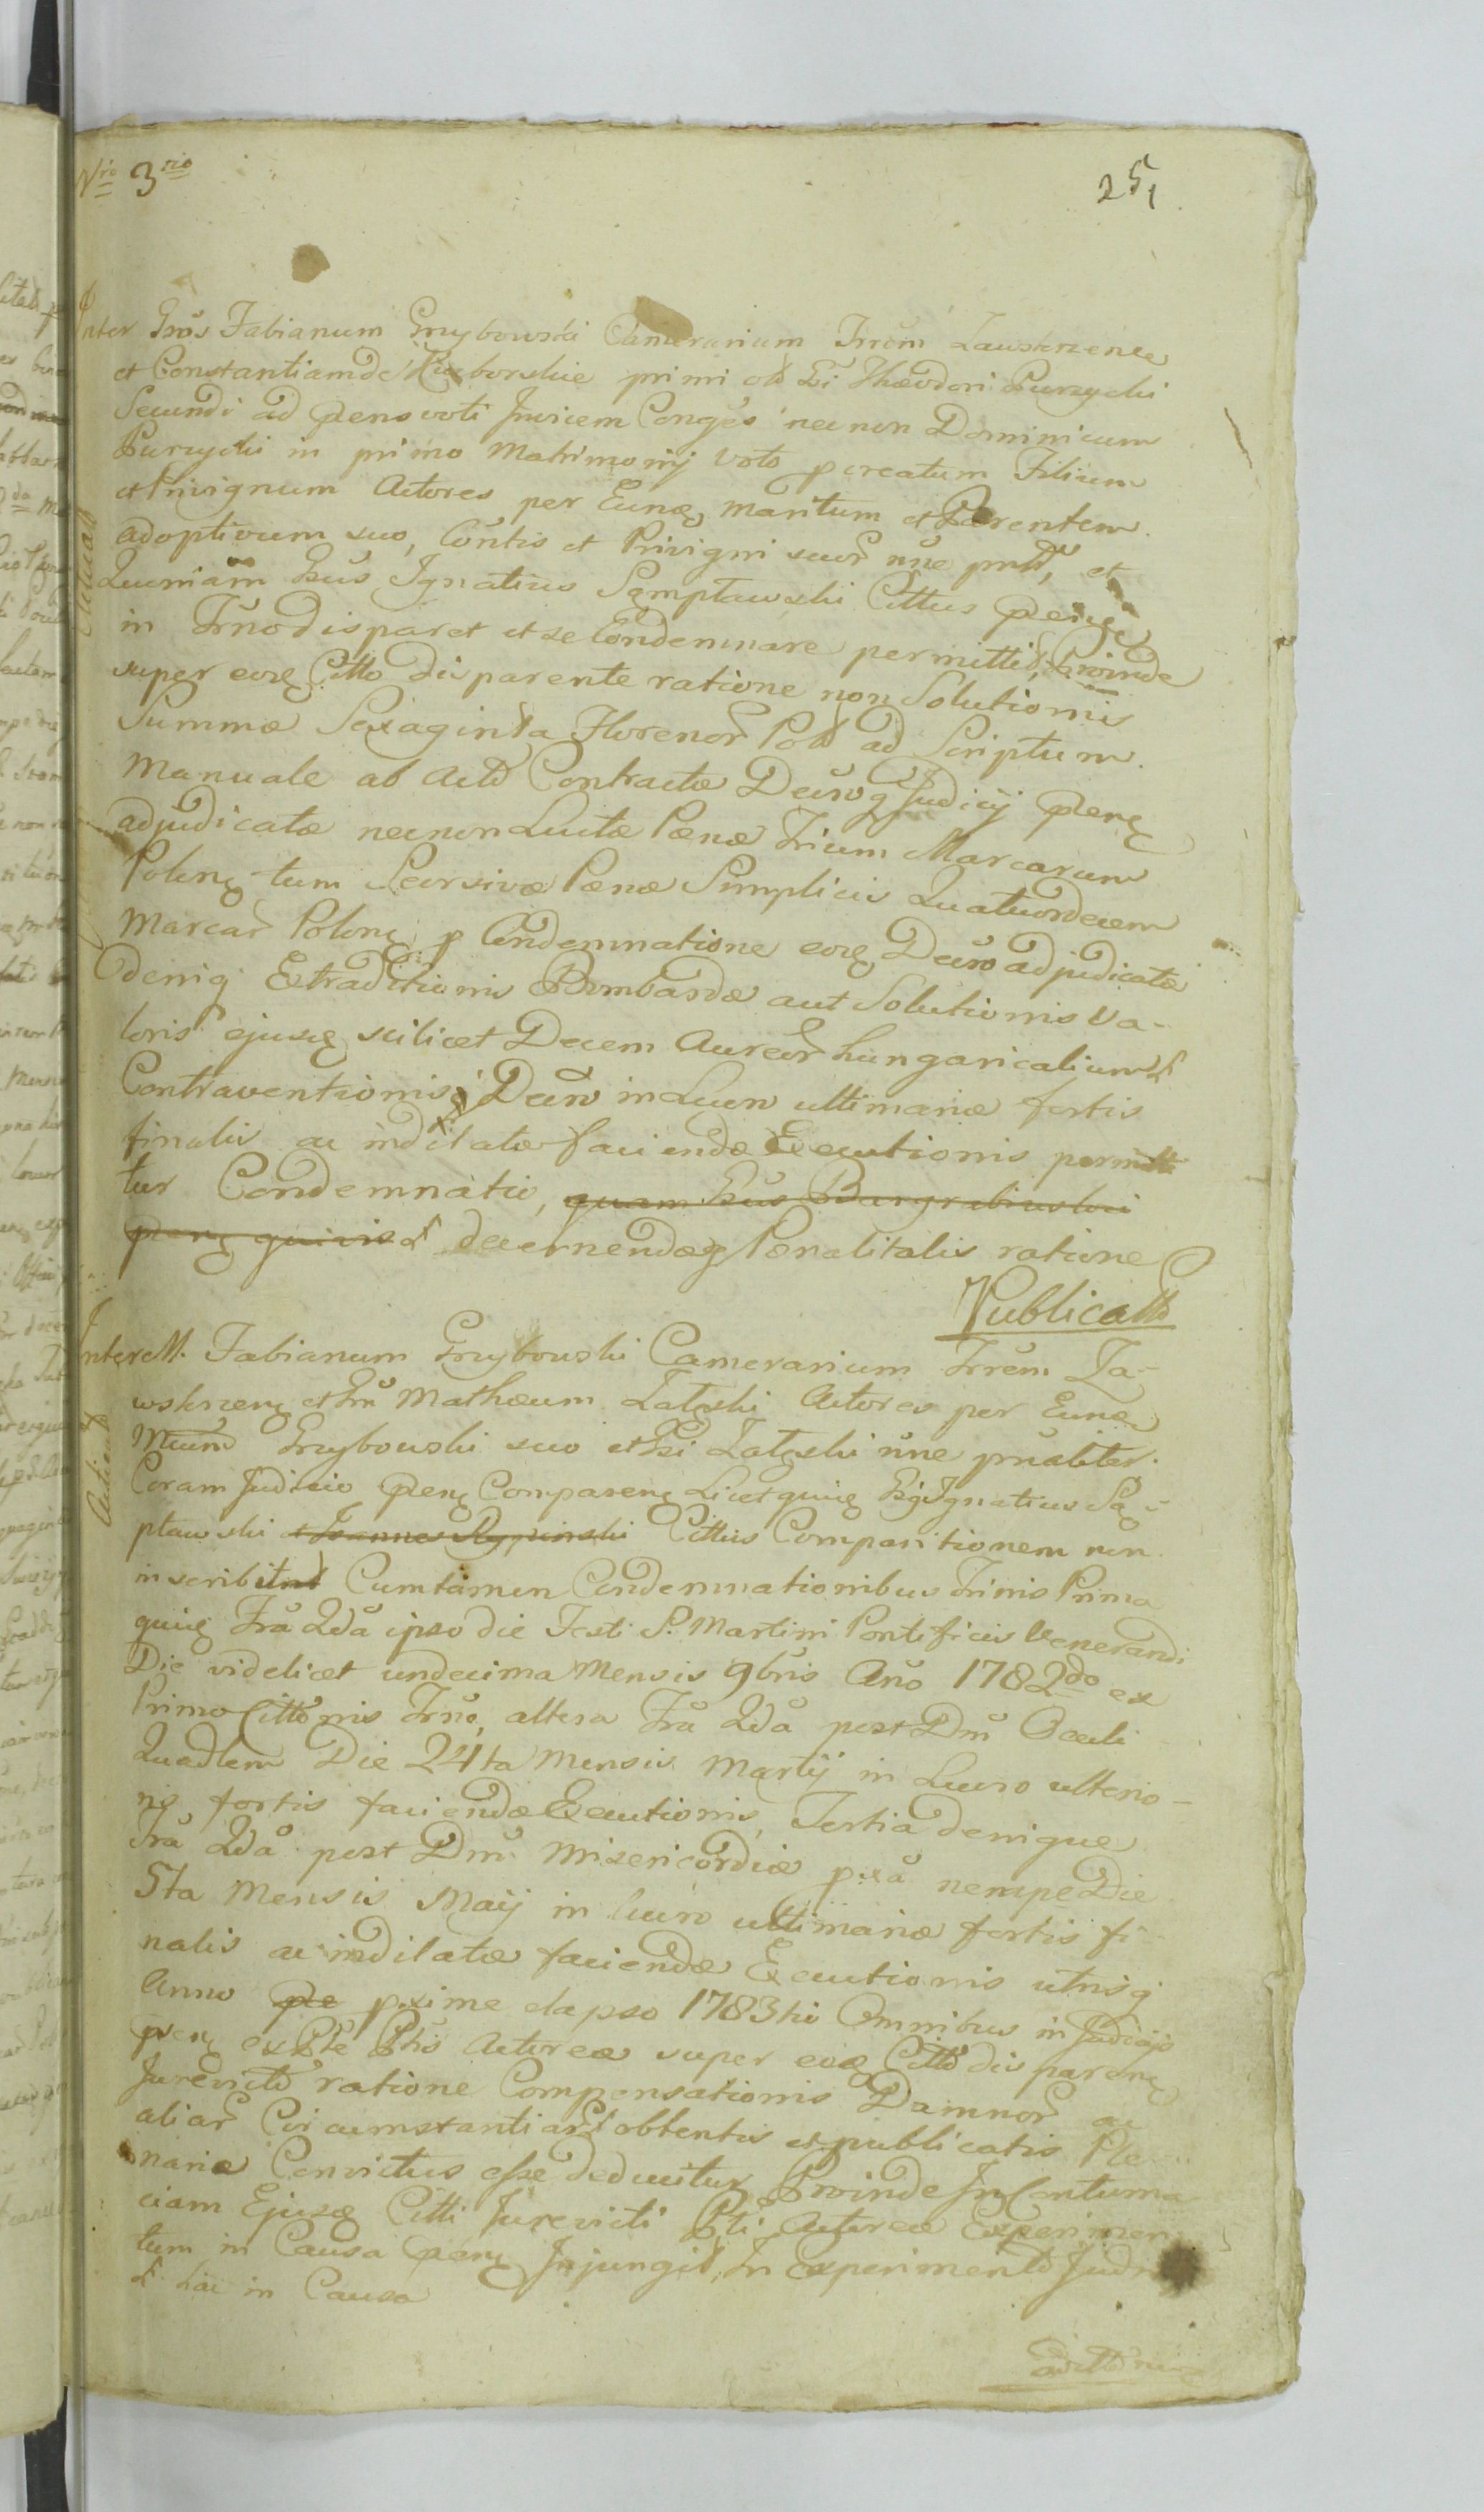 Nro 3rio
251
Inter Gnos Fabianum Grzybowski Camerarium Trrem Zawskrzenen
et Constantiam de primi olt Gi Theodori Purzycki
Secundi ad Pens voti Invicem Conges necnon Dominicum
Purzycki in primo Matrimonij voto pcreatum Filium
et Privignum Actores per Eunq maritum et Parentem
adoptivum suo, Contis et Privigni suor nne pntt, et
Quoniam Gsus Ignatius Sęmpławski Cittus
in Trno disparet et se Condemnare permittit, Proinde
super eoq Citto disparente ratione non Solutionis
Summæ Sexaginta Florenor Poll ad Scriptum
Manuale ab Actt Contractæ Decroq Judicij Pens
adjudicatæ necnon Luitæ Pænæ Trium Marcarum
Polonq tum Seorsivæ Pænæ Simplicis Quatuordecem
Marcar Polonq p Condemnatione eoq Decro adjudicatæ
deniq Extraditionis Bombardæ aut Solutionis Va-
loris ejusq scilicet Decem Aureor hungaricalium
Contraventionisq Decro in Lucro ultimariæ fortis
finalis ac indilatæ faciendæ Executionis permitti
tur Condemnatio, quam Gsus Burgrabius loci
decernendæq Pænalitatis ratione
Publicatt
Inter M. Fabianum Grzybowski Camerarium Trrem Za-
wskrzenq et Gn Mathæum Zaleski Actores per Eunq
Mcum Grzybowski suo et Gsi Zaleski nne pnaliter
Coram Judicio Pens Comparenq Licet quiq Gsq Ignatius Sę-
pławski Cittus Comparitionem non
inscribit Cum tamen Condemnationibus Trinis Prima
quiq Fra 2da ipso die Festi S. Martini Pontificis Venerandi
Die videlicet undecima Mensis 9bris Ano 1782do ex
Primo Cittonis Trno, altera Fra 2da post Dm Oculi
Quadlem Die 24ta Mensis Martij in Lucro ulterio-
ris, fortis faciendæ Executionis, Tertia denique
Fra 2da post Dm Misericordiæ pxa nempe Die
5ta Mensis Maij in lucro ultimariæ fortis fi-
nalis ac indilatæ faciendæ Executionis utrisq
Anno pe pxime elapso 1783tio Omnibus in Judicijs
Pens ex Pte Ptis Actoreæ super eoq Citto disparenq
Jurevicto ratione Compensationis Damnor ac
aliar Circumstantiar obtentis et publicatis Ple
nariæ Convictus esse deducitur Proinde In Contuma
ciam Ejusq Citti Jurevicti Pti Actoreæ Experimen
tum in Causa Pens Injungit, In Experimento Judn
hac in Causa